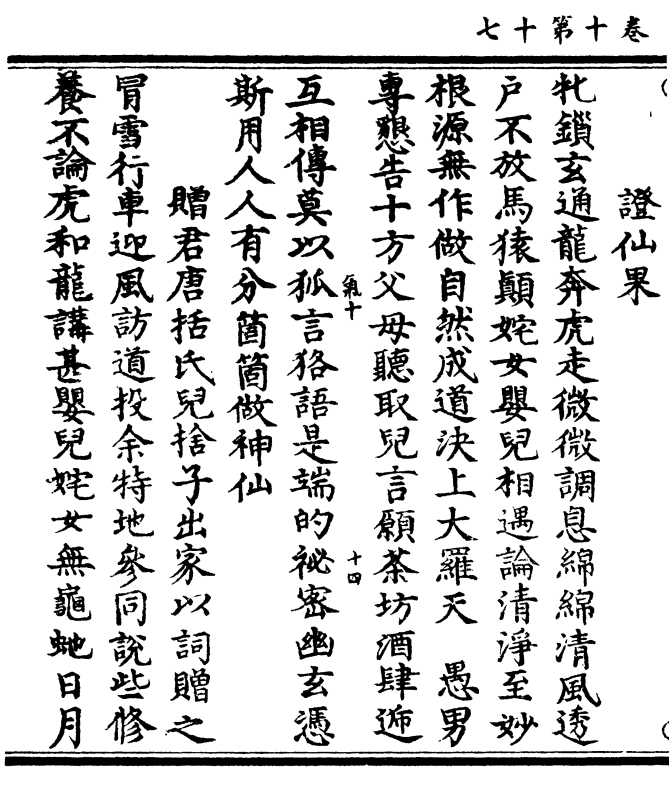 卷十第十七
證仙果
牝鎖玄通龍奔虎走微微調息綿綿清風透
戶不放馬猿顛姹女嬰兒相遇論清淨至妙
根源無作做自然成道決上大羅天　愚男
專懇告十方父母聽取兒言願茶坊酒肆遞
互相傳莫以狐言狢語是端的祕密幽玄憑
氣十
十四
斯用人人有分箇箇做神仙
贈君唐括氏兒捨子出家以詞贈之
冐雪行車迎風訪道投余特地參同說些修
養不論虎和龍講甚嬰兒姹女無龜虵日月